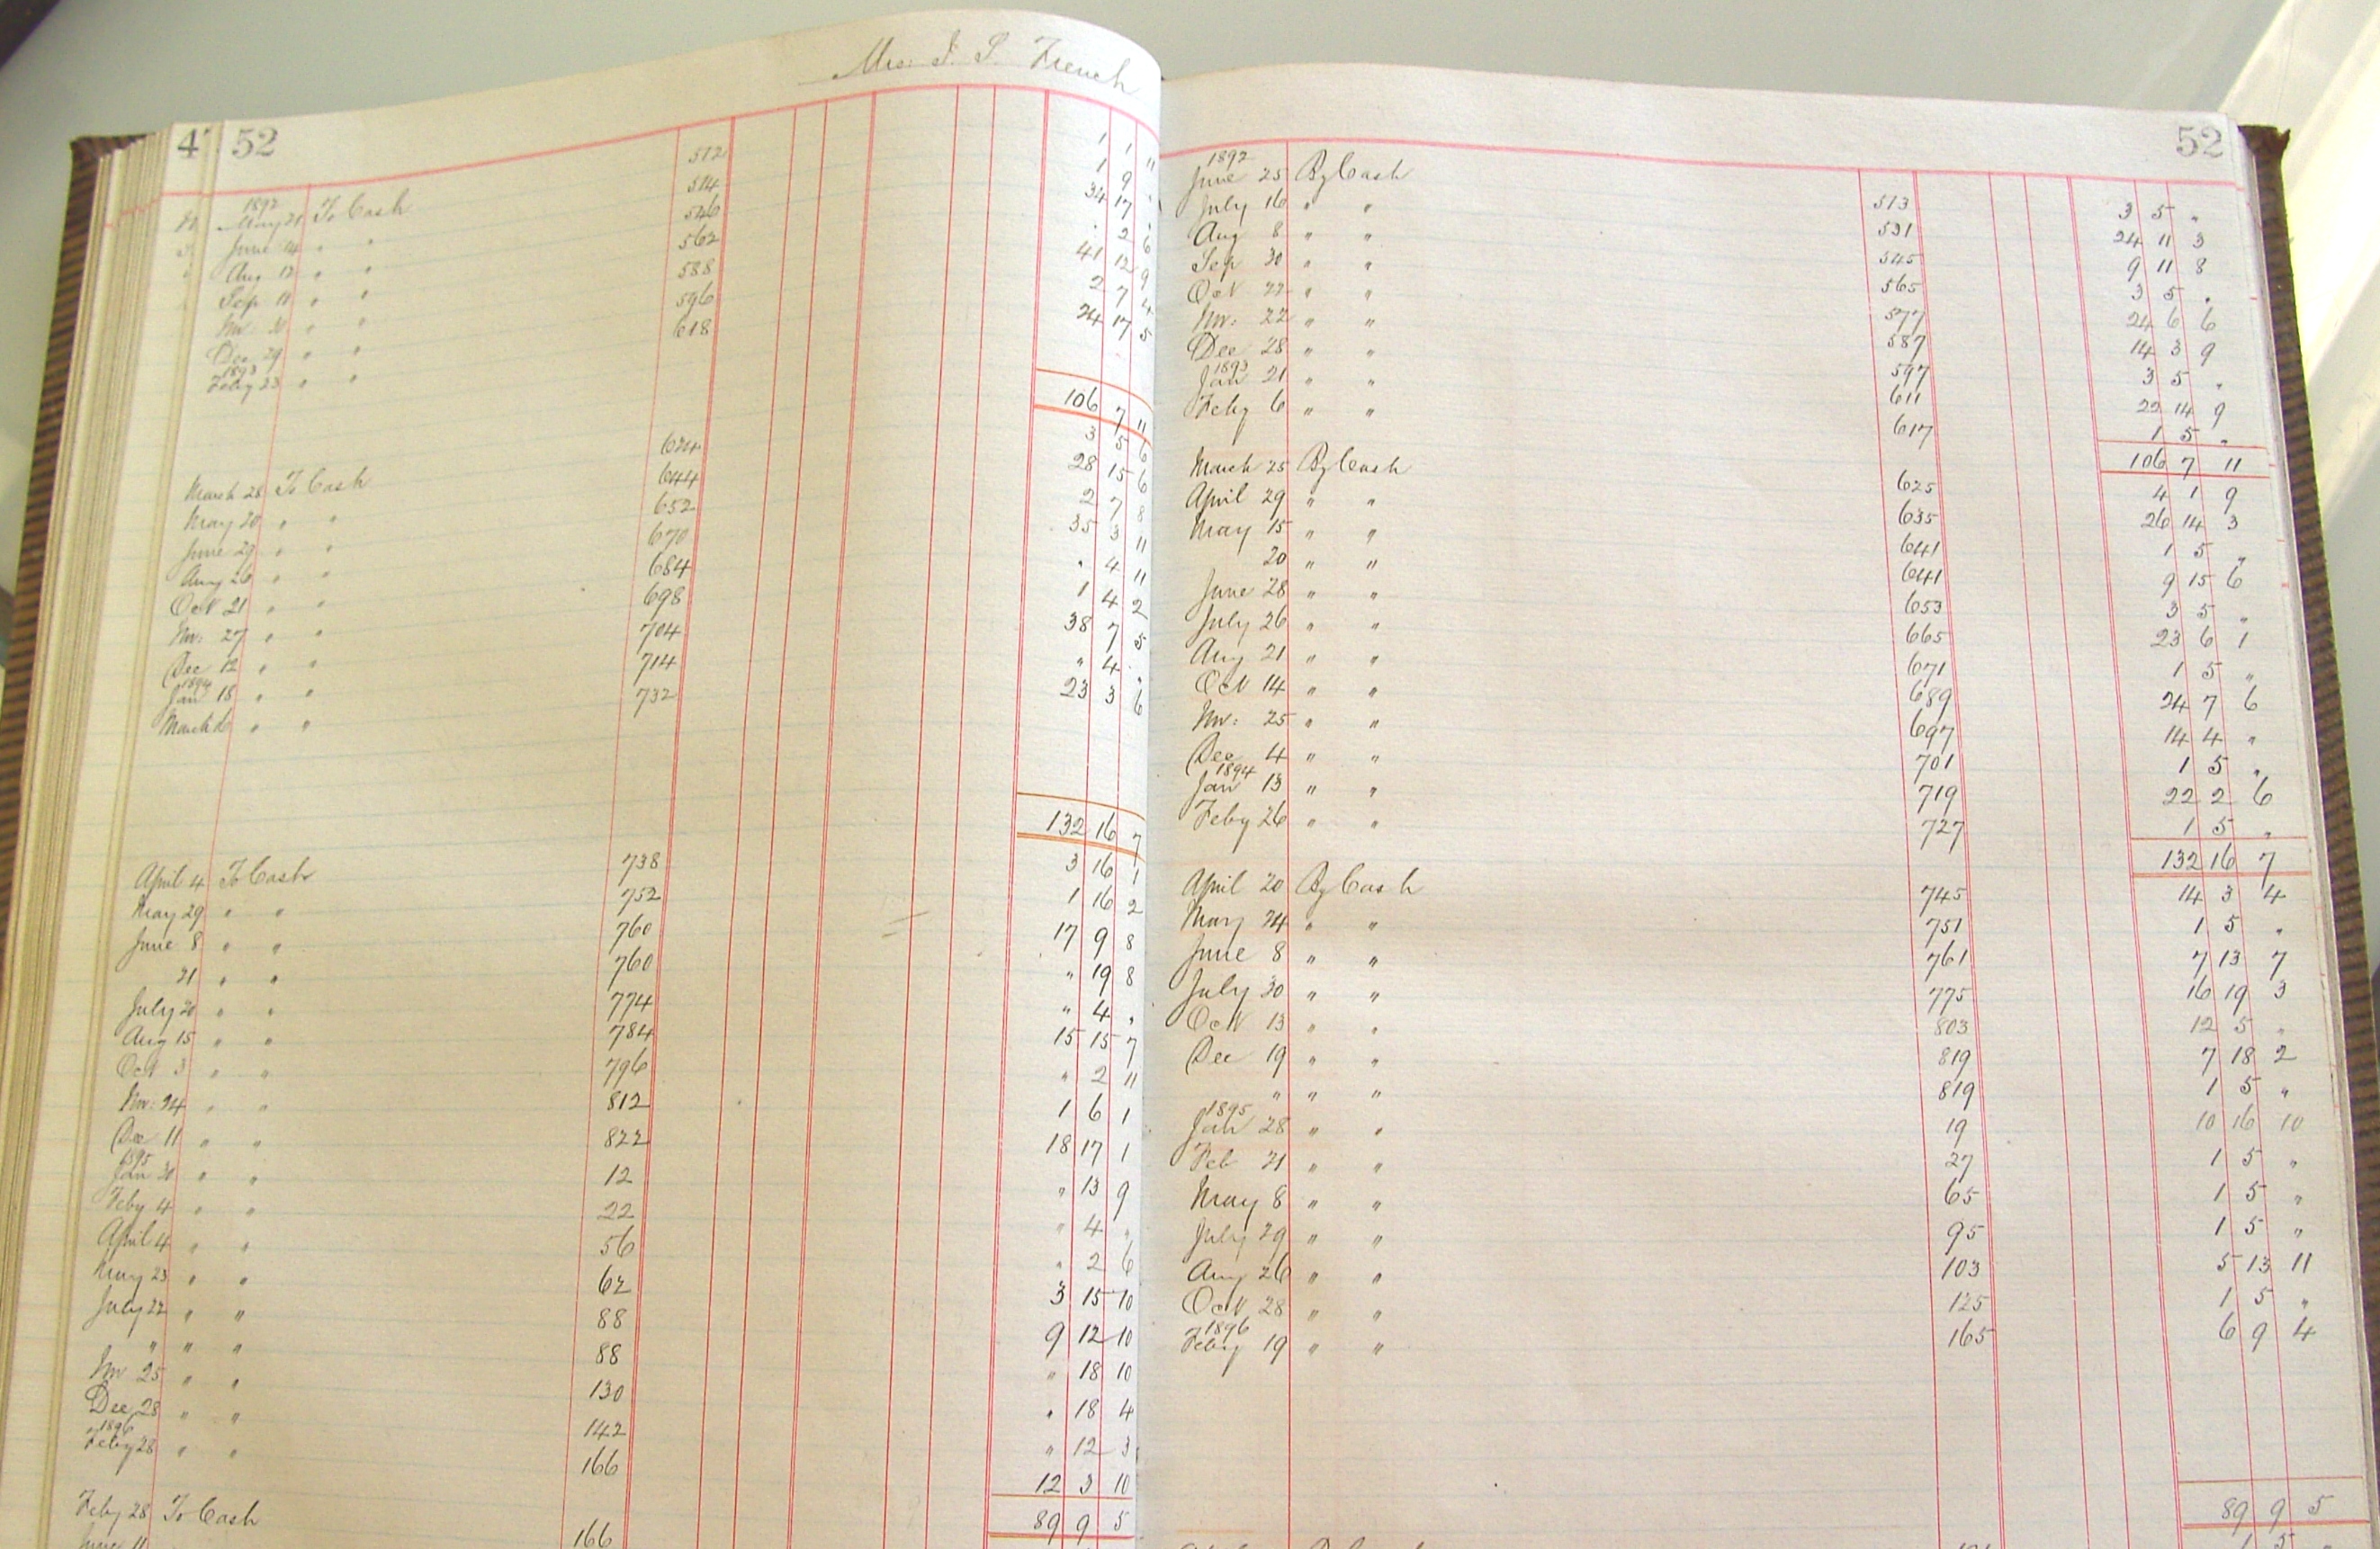 Mrs: J. S. French
4 52
1892
May 21 To Cash 512 1 1 "
June 14 " " 514 1 9 "
Aug 12 " " 546 34 17 "
Sep 11 " " 562 " 2 6
Nov: 30 " " 588 41 12 9
Dec 29 " " 596 2 7 4
1893
Feby 23 " " 618 24 17 5
106 7 11
March 28 To Cash 624 3 5 6
May 20 " " 644 28 15 6
June 27 " " 652 2 7 8
Aug 26 " " 670 35 3 11
Oct 21 " " 684 " 4 11
Nov: 27 " " 698 1 4 2
Dec 12 " " 704 38 7 5
1894
Jan 18 " " 714 " 4 "
March 16 " " 732 23 3 6
132 16 7
April 4 To Cash 738 3 16 1
May 29 " " 752 1 16 2
June 8 " " 760 17 9 8
21 " " 760 " 19 8
July 20 " " 774 " 4 "
Aug 15 " " 784 15 15 7
Oct 3 " " 796 " 2 11
Nov: 24 " " 812 1 6 1
Dec 11 " " 822 18 17 1
1895
Jan " " 12 " 13 9
Feby 4 " " 22 " 4 "
April 4 " " 56 " 2 6
May 23 " " 62 3 15 10
July 22 " " 88 9 12 10
" " " 88 " 18 10
Nov 25 " " 130 " 18 4
Dec 28 " " 142 " 12 3
1896
Feby 28 " " 166 12 3 10
89 9 5
Feby 28 To Cash 166
June 11
52
1892
June 25 By Cash 513 3 5 "
July 16 " " 531 24 11 3
Aug 8 " " 545 9 11 8
Sep 30 " " 565 3 5 "
Oct 22 " " 577 24 6 6
Nov: 22 " " 587 14 3 9
Dec 28 " " 597 3 5 "
1893
Jan 21 " " 611 22 14 9
Feby 6 " " 617 1 5 "
106 7 11
March 25 By Cash 625 4 1 9
April 29 " " 635 26 14 3
May 15 " " 641 1 5 "
20 " " 641 9 15 6
June 28 " " 653 3 5 "
July 26 " " 665 23 6 1
Aug 21 " " 671 1 5 "
Oct 14 " " 689 24 7 6
Nov: 25 " " 697 14 4 "
Dec 4 " " 701 1 5 "
1894
Jan 13 " " 719 22 2 6
Feby 26 " " 727 1 5 "
132 16 7
April 20 By Cash 745 14 3 4
May 24 " " 751 1 5 "
June 8 " " 761 7 13 7
July 30 " " 775 16 19 3
Oct 13 " " 803 12 5 "
Dec 19 " " 819 7 18 2
" " " 819 1 5 "
1895
Jan 28 " " 19 10 16 10
Feb 21 " " 27 1 5 "
May 8 " " 65 1 5 "
July 29 " " 95 1 5 "
Aug 26 " " 103 5 13 11
Oct 28 " " 125 1 5 "
1896
Feby 19 " " 165 6 9 4
89 9 5